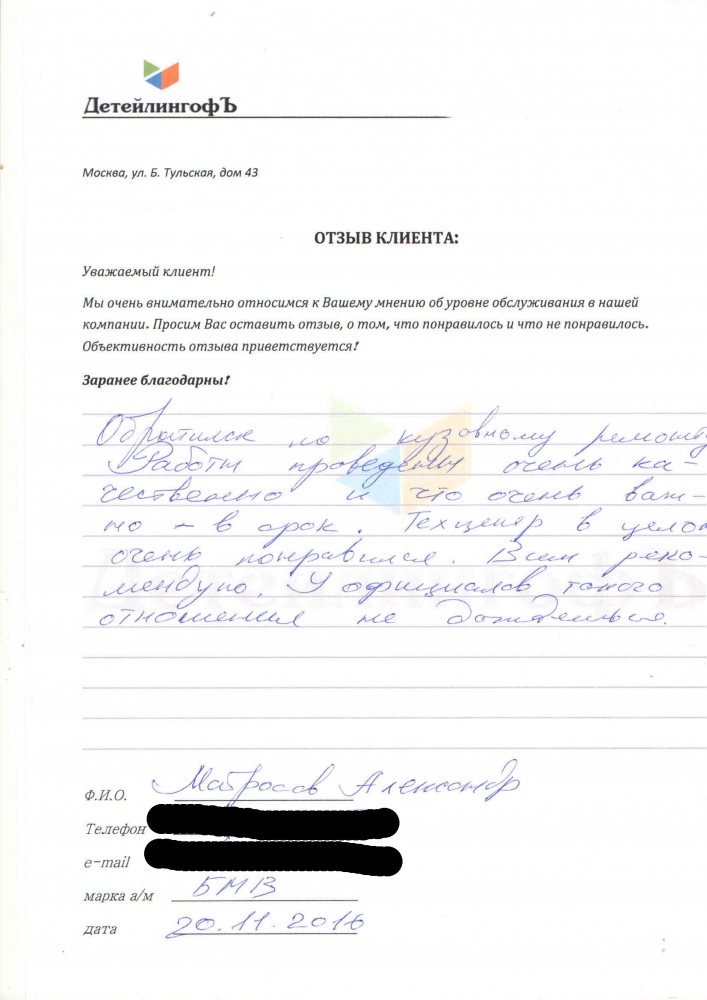 ДетейлингофЪ
Москва, ул. Б. Тульская, дом 43
ОТЗЫВ КЛИЕНТА:
Уважаемый клиент!
Мы очень внимательно относимся к Вашему мнению об уровне обслуживания в нашей
компании. Просим Вас оставить отзыв, о том, что понравилось и что не понравилось.
Объективность отзыва приветствуется!
Заранее благодарны!
Обратился по кузовному ремонту
Работы проведены очень ка-
чественно и что очень важ-
но - в срок. Техцентр в целом
очень понравился. Всем реко-
мендую. У официалов такого
отношения не дождёшься.
Ф.И.О. Матросов Александр
Телефон
e-mail
марка а/м БМВ
дата 20.11.2016